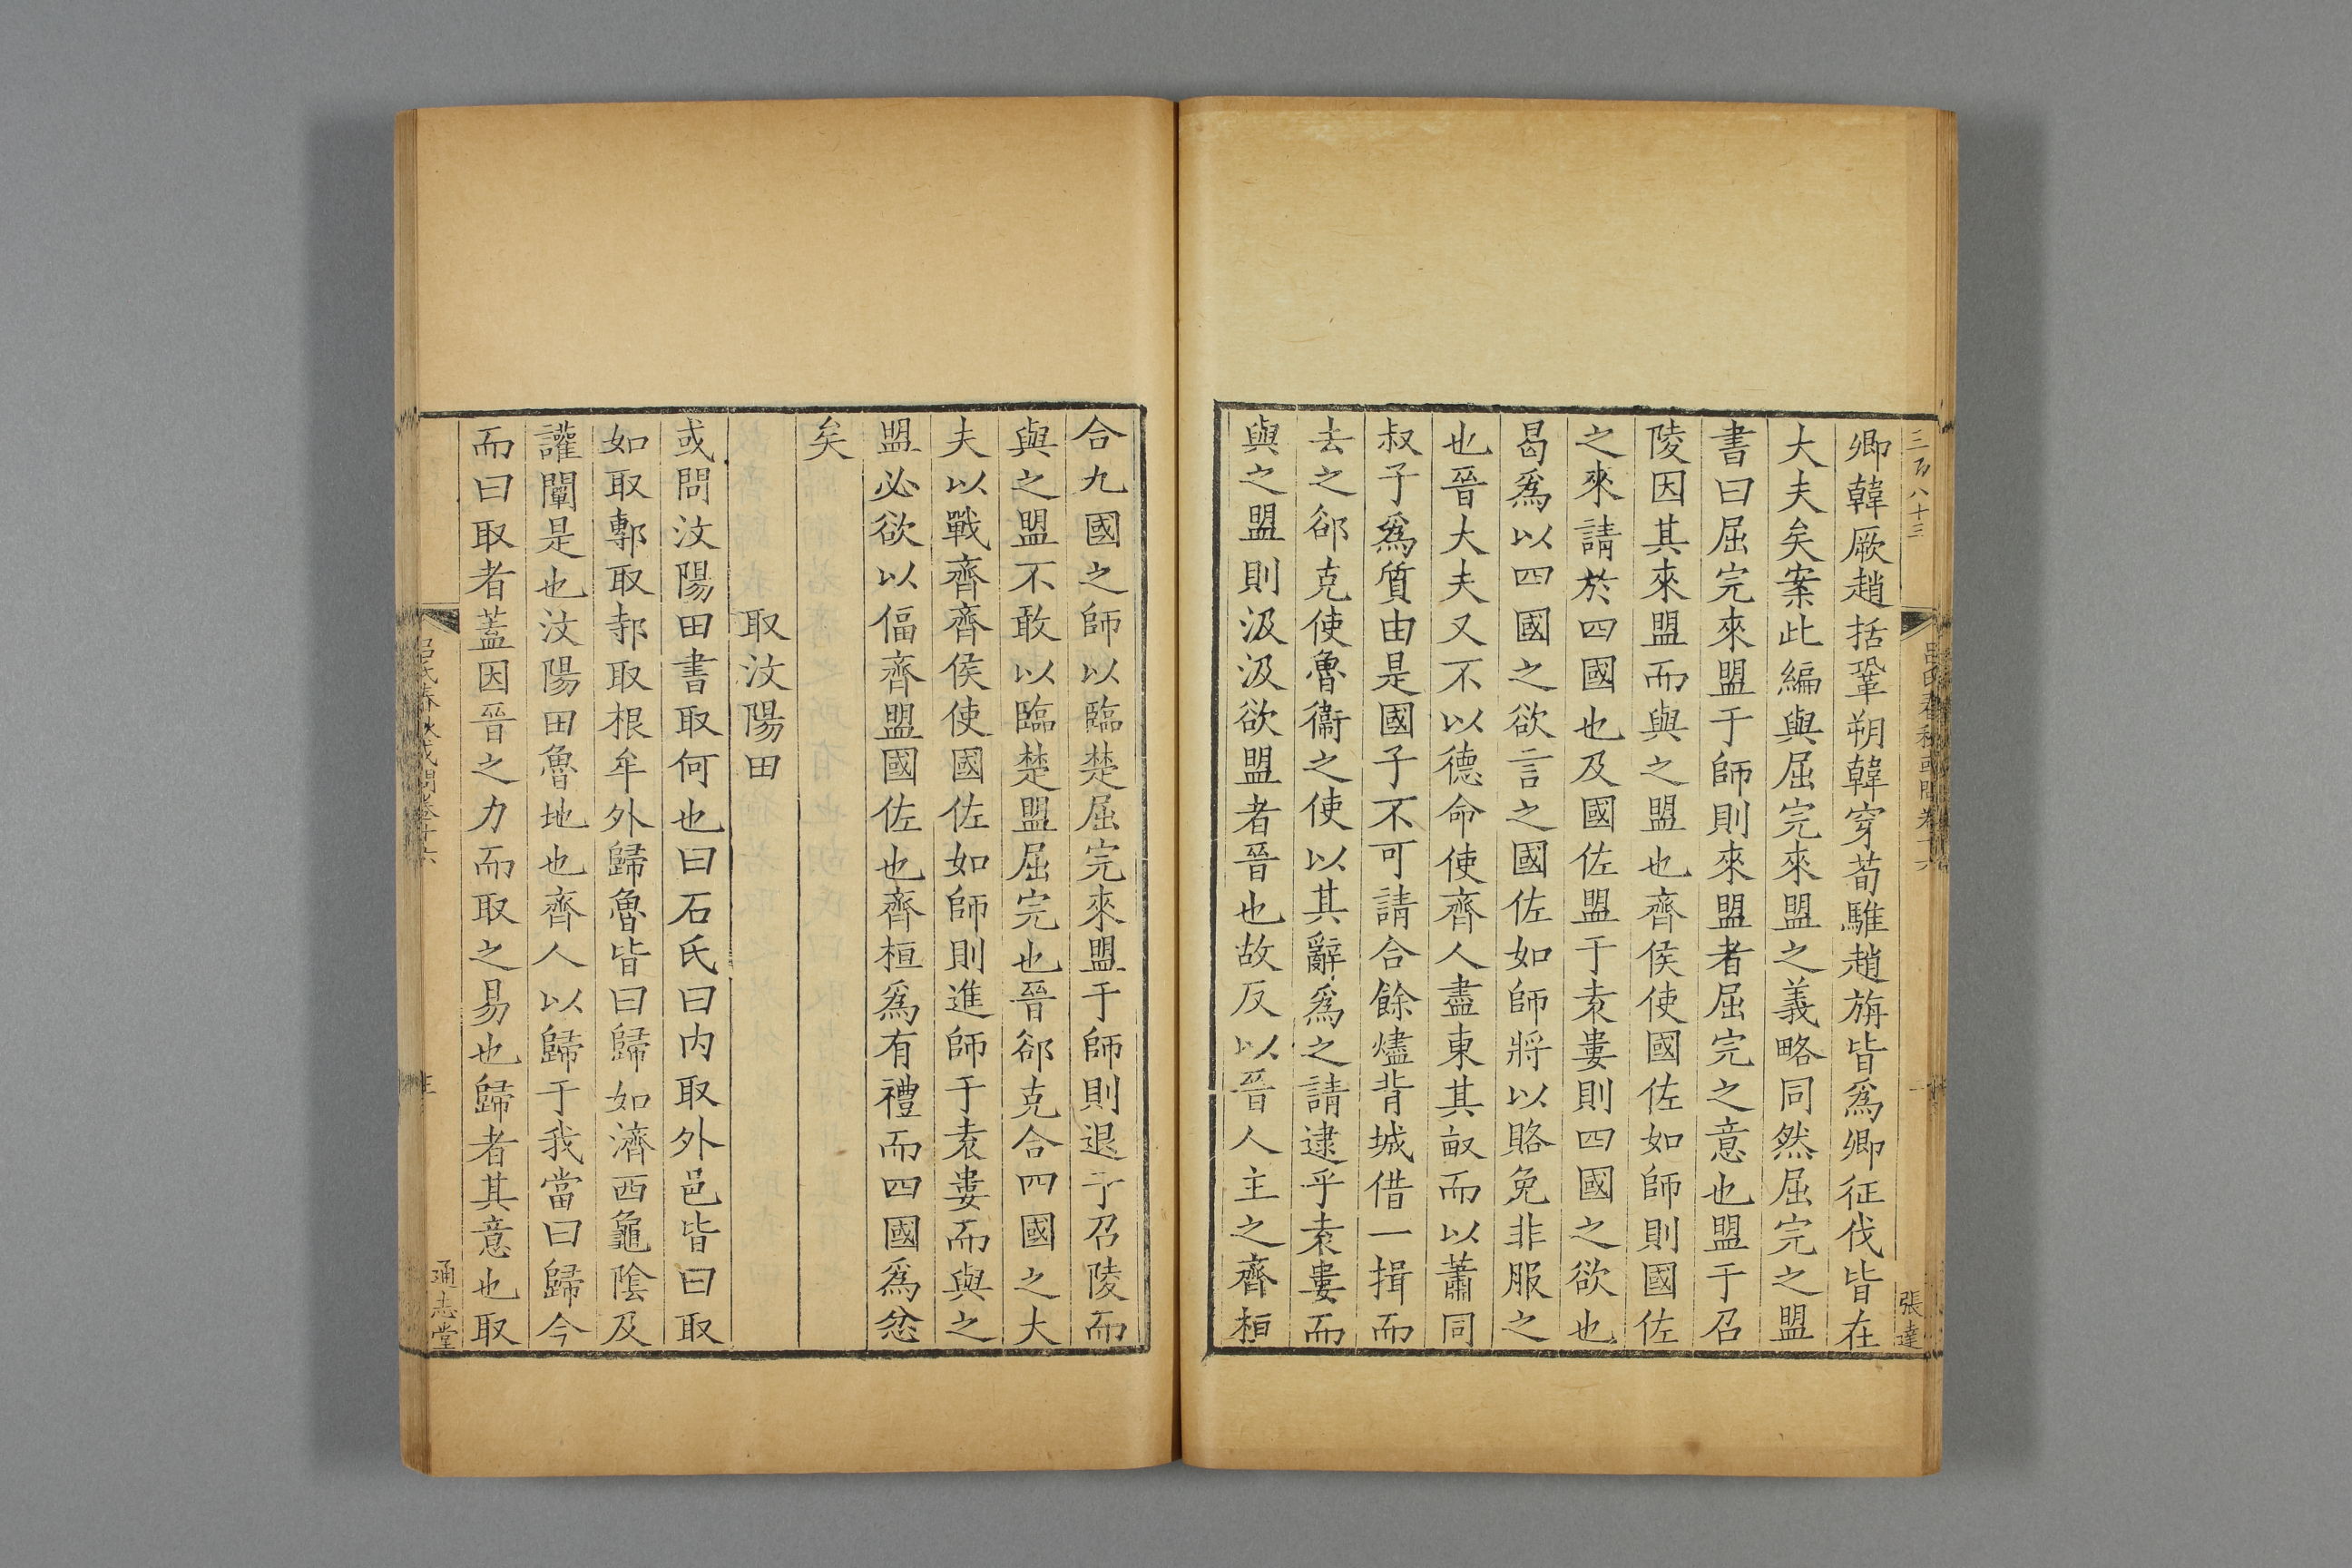 三百八十三
呂氏春秋或問卷十六
張達
卿韓厥趙括鞏朔韓穿荀騅趙旃皆爲卿征伐皆在
大夫矣案此編與屈完來盟之義略同然屈完之盟
書曰屈完來盟于師則來盟者屈完之意也盟于召
陵因其來盟而與之盟也齊侯使國佐如師則國佐
之來請於四國也及國佐盟于袁婁則四國之欲也
曷爲以四國之欲言之國佐如師將以賂免非服之
也晉大夫又不以德命使齊人盡東其畝而以蕭同
叔子爲質由是國子不可請合餘燼背城借一揖而
去之郤克使魯衞之使以其辭爲之請逮乎袁婁而
與之盟則汲汲欲盟者晉也故反以晉人主之齊桓
合九國之師以臨楚屈完來盟于師則退于召陵而
與之盟不敢以臨楚盟屈完也晉郤克合四國之大
夫以戰齊齊侯使國佐如師則進師于袁婁而與之
盟必欲以偪齊盟國佐也齊桓爲有禮而四國爲忿
矣
取汶陽田
或問汶陽田書取何也曰石氏曰内取外邑皆曰取
如取鄟取邿取根牟外歸魯皆曰歸如濟西龜陰及
讙闡是也汶陽田魯地也齊人以歸于我當曰歸今
而曰取者蓋因晉之力而取之易也歸者其意也取
呂氏春秋或問卷十六
通志堂